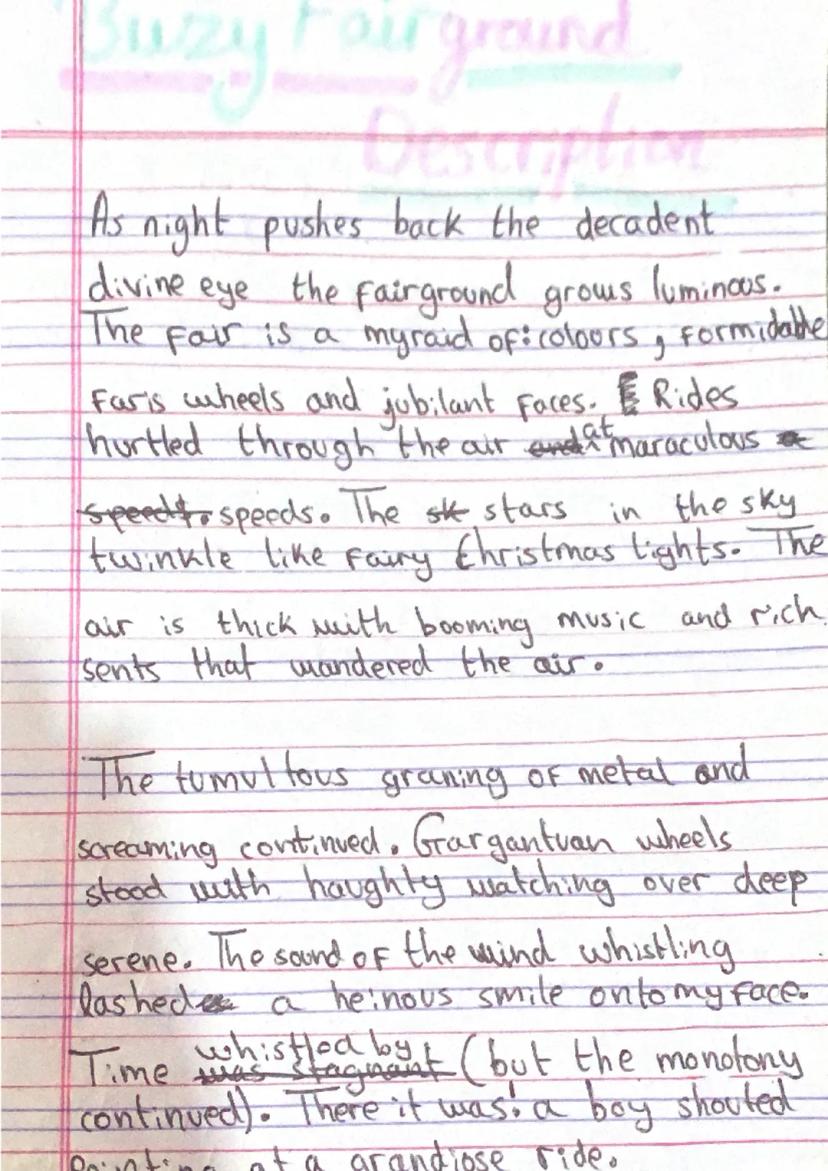 Buzy Fairground
Description
As night pushes back the decadent
divine eye the fairground grows luminous.
The fair is a myraid of: colours, formidable
Faris wheels and jubilant faces. Rides
hurtled through the air at maraculous
speeds. The stars in the sky
twinkle like fairy Christmas lights. The
air is thick with booming music and rich
sents that wandered the air.
The tumultous graning of metal and
screaming continued. Gargantuan wheels
stood with haughty watching over deep
serene. The sound of the wind whistling
lashed a heinous smile onto my face.
Time whistled by (but the monotony
continued). There it was! a boy shouted
Pointing at a grandiose ride.